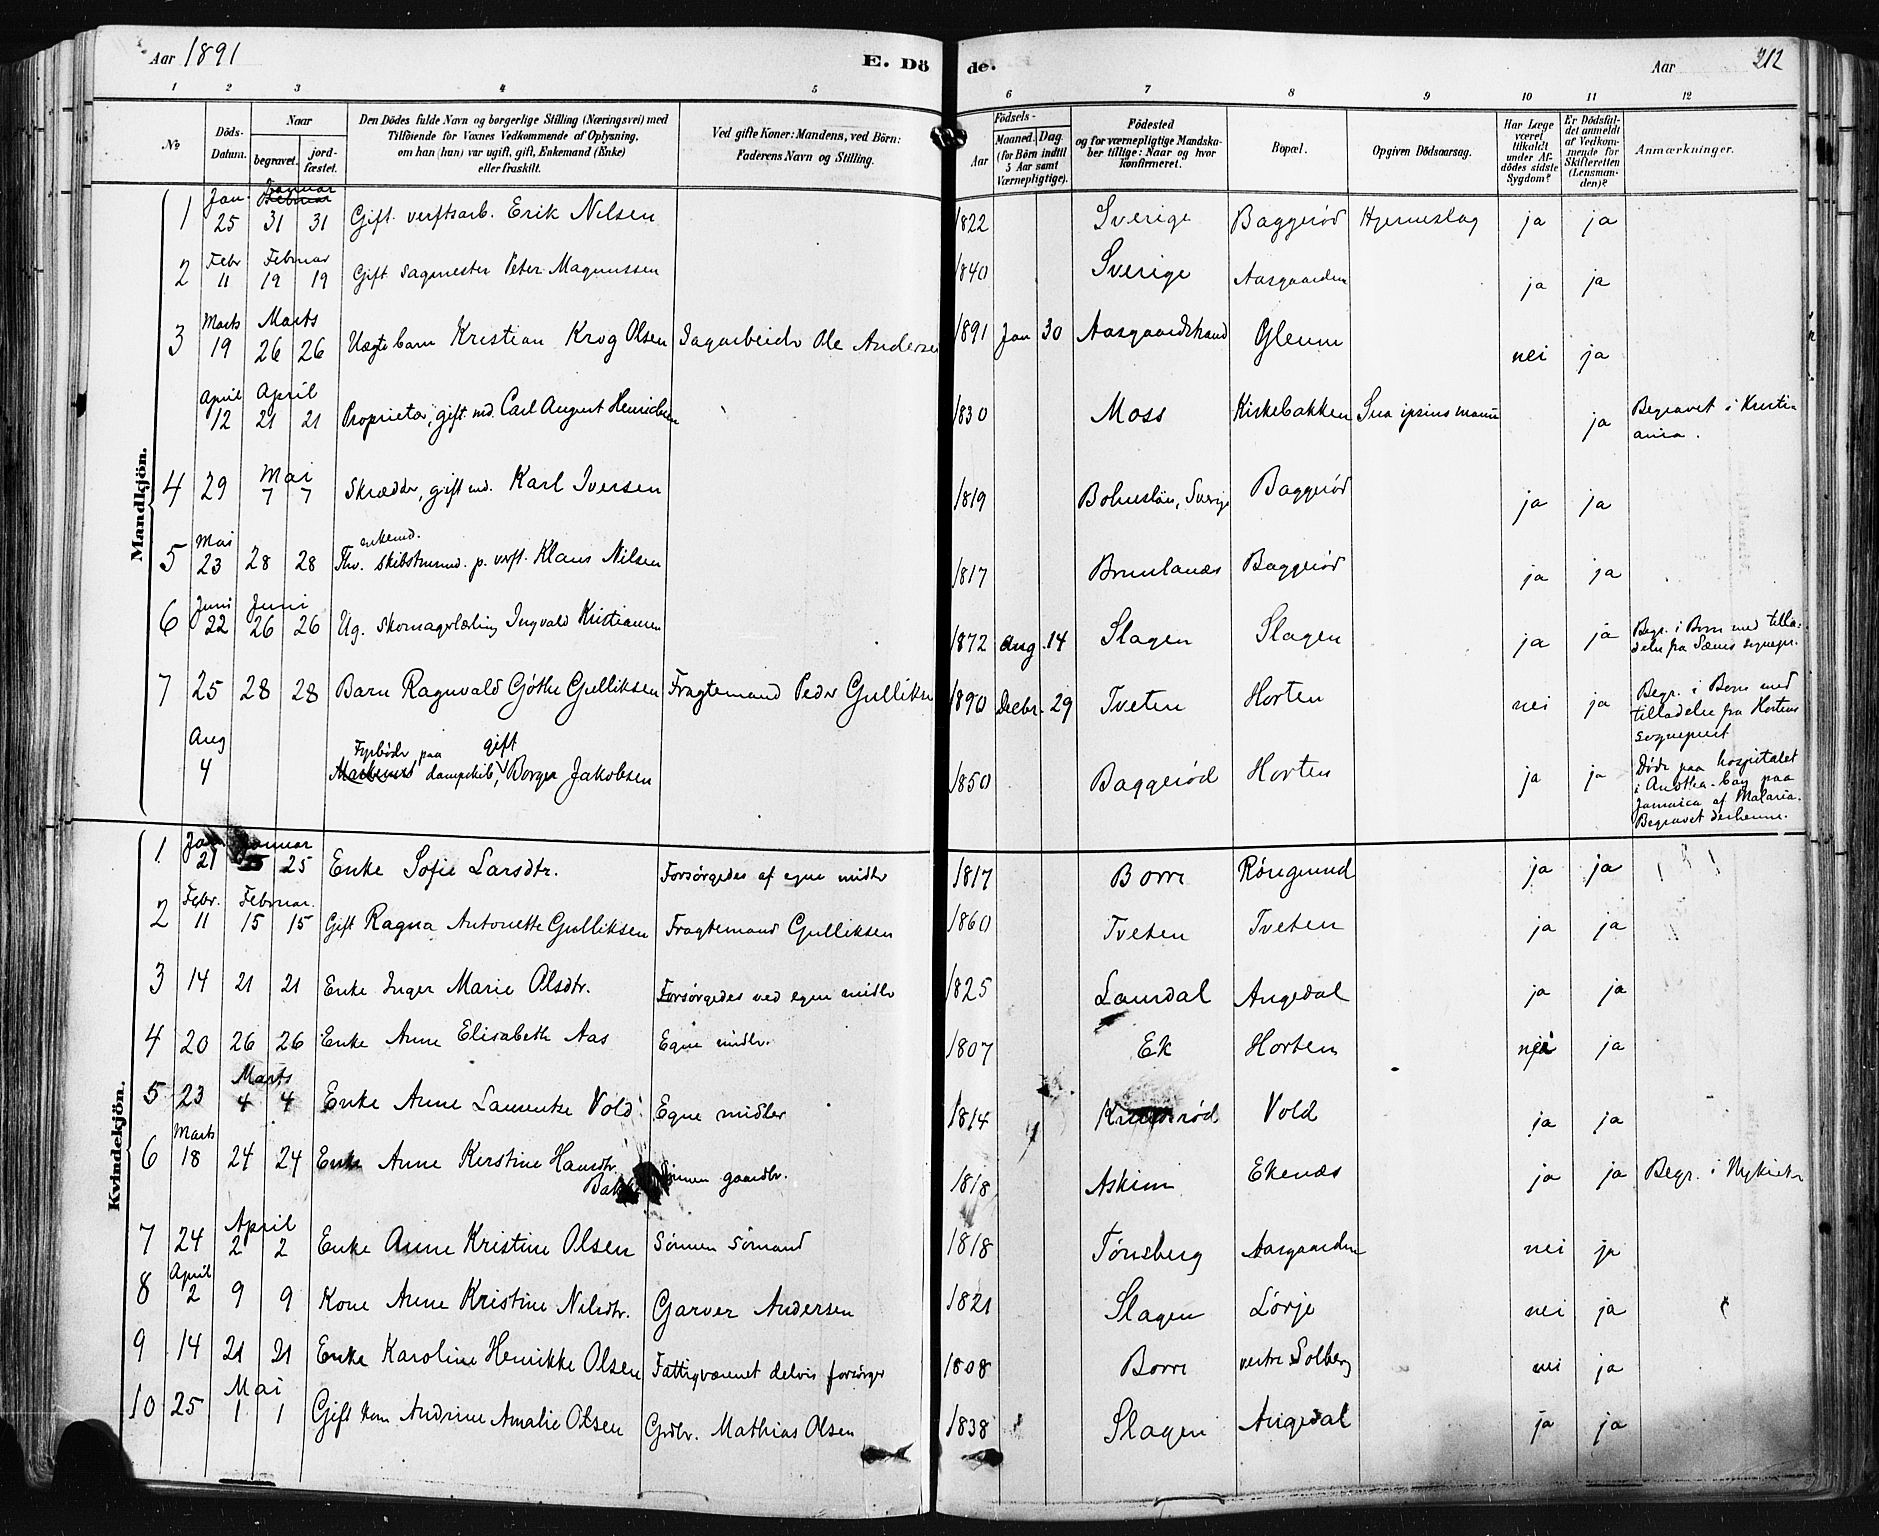 Aar 1891 E. Dö de. Aar 212
1 2 3 4 5 6 7 8 9 10 11 12
No Döds-Datum. Naar begravet. jord-fæstet. Den Dödes fulde Navn og borgerlige Stilling (Næringsvei) med Tilföiende for Voxnes Vedkommende af Oplysning, om han (hun) var ugift, gift, Enkemand (Enke) eller fraskilt. Ved gifte Koner: Mandens, ved Börn: Faderens Navn og Stilling. Födsels- Aar Maaned. Dag. (for Börn indtil 5 Aar samt Værnepligtige). Födested og for værnepligtige Mandskaber tillige: Naar og hvor konfirmeret. Bopæl. Opgiven Dödsaarsag. Har Læge været tilkaldt under Afdödes sidste Sygdom? Er Dödsfaldet anmeldt af Vedkommende for Skifteretten (Lensmanden)? Anmærkninger.
Mandkjön.
1 Jan. 25 Januar 31 31 Gift. verftsarb. Erik Nilsen 1822 Sverige Baggerød Hjerneslag ja ja
2 Febr 11 Februar 19 19 Gift Sagmester Peter Magnussen 1840 Sverige Aasgaarden ja ja
3 Marts 19 Marts 26 26 Uægte barn Kristian Krog Olsen Dagarbeider Ole Andersen 1891 Jan 30 Aasgaardstrand Glenne nei ja
April 12 April 21 21 Proprietær, gift md. Carl August Henrichsen 1830 Moss Kirkebakken Sua ipsius manu ja Begravet i Kristi-
ania.
4 29 Mai 7 7 Skrædder, gift md. Karl Iversen 1819 Bohuslän, Sverige Baggerød ja ja
5 Mai 23 28 28 Thv. enkemd. skibstmmd. p. verft. Klaus Nilsen 1817 Brunlanæs Baggerød ja ja
6 Juni 22 Juni 26 26 Ug. skomagerlærling Ingvald Kristiansen 1872 Aug. 14 Slagen Slagen ja ja Begr. i Borre med tilla-
delse fra Sæms sognepr.
7 25 28 28 Barn Ragnvald Gøthe Gulliksen Fragtemand Peder Gulliksen 1890 Decbr. 29 Tveten Horten nei ja Begr. i Borre med
tilladelse fra Hortens
sogneprest
Aug 4 Fyrbøder paa dampskib, gift Borger Jakobsen 1850 Baggerød Horten ja ja Døde paa hospitalet
i bay paa
Jamaica af Malaria.
Begravet derhenne.
Kvindekjön.
1 Jan 21 Januar 25 25 Enke Sofie Larsdtr. Forsørgedes af egne midler 1817 Borre Rønegrund ja ja
2 Febr. 11 Februar. 15 15 Gift Ragna Antonette Gulliksen Fragtemand Gulliksen 1860 Tveten Tveten ja ja
3 14 21 21 Enke Inger Marie Olsdtr. Forsørgedes ved egne midler 1825 Laurdal Augedal ja ja
4 20 26 26 Enke Anne Elisabeth Aas Egne midler. 1807 Ek Horten nei ja
5 23 Marts 4 4 Enke Anne Laurentze Vold Egne midler 1814 Vold ja ja
6 Marts 18 24 24 Enke Anne Kerstine Hansdtr. Sønnen gaardbr. 1818 Askim Ekenæs ja ja Begr. i Nykirke
7 24 April 2 2 Enke Anne Kristine Olsen Sønnen sømand 1818 Tønsberg Aasgaarden nei ja
8 April 2 9 9 Kone Anne Kristine Nilsdtr. Garver Andersen 1821 Slagen Lørje nei ja
9 14 21 21 Enke Karoline Henrikke Olsen Fattigvæsenet delvis forsørger 1808 Borre vestre Solberg nei ja
10 25 Mai 1 1 Gift kone Andrine Amalie Olsen Grdbr. Mathias Olsen 1838 Slagen Augedal ja ja